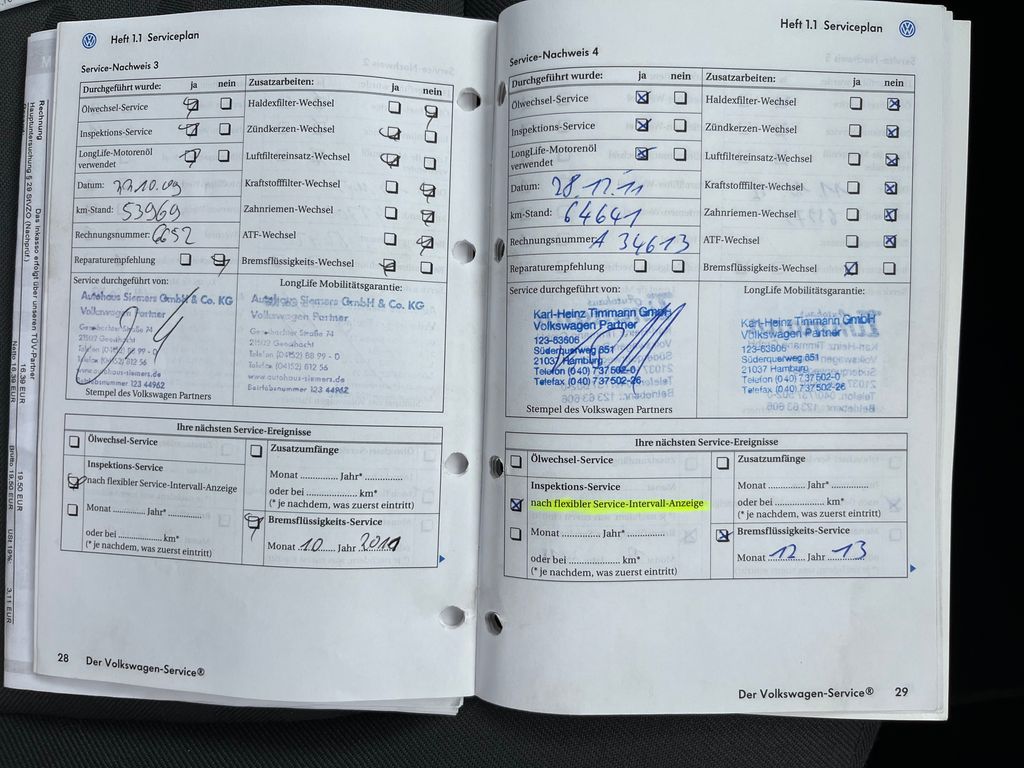 Rechnung
Hauptuntersuchung § 29 StVZO (Nachprüf.)
Das Inkasso erfolgt über unseren TÜV-Partner
Netto 16.39 EUR
16.39 EUR
Brutto 19.50 EUR
19.50 EUR
USt 19%:
3.11 EUR
Heft 1.1 Serviceplan
Service-Nachweis 3
Durchgeführt wurde: ja nein Zusatzarbeiten: ja nein
Ölwechsel-Service Haldexfilter-Wechsel
Inspektions-Service Zündkerzen-Wechsel
LongLife-Motorenöl verwendet Luftfiltereinsatz-Wechsel
Datum: 22.10.09 Kraftstofffilter-Wechsel
km-Stand: 53969 Zahnriemen-Wechsel
Rechnungsnummer: 6652 ATF-Wechsel
Reparaturempfehlung Bremsflüssigkeits-Wechsel
Service durchgeführt von: LongLife Mobilitätsgarantie:
Autohaus Siemers GmbH & Co. KG Autohaus Siemers GmbH & Co. KG
Volkswagen Partner Volkswagen Partner
Geesthachter Straße 74 Geesthachter Straße 74
21502 Geesthacht 21502 Geesthacht
Telefon (04152) 88 99 - 0 Telefon (04152) 88 99 - 0
Telefax (04152) 812 56 Telefax (04152) 812 56
www.autohaus-siemers.de www.autohaus-siemers.de
Betriebsnummer 123 44962 Betriebsnummer 123 44962
Stempel des Volkswagen Partners
Ihre nächsten Service-Ereignisse
Ölwechsel-Service Zusatzumfänge
Inspektions-Service
nach flexibler Service-Intervall-Anzeige Monat ............ Jahr* ............
oder bei ............ km*
(* je nachdem, was zuerst eintritt)
Monat ............ Jahr* ............ Bremsflüssigkeits-Service
oder bei ............ km* Monat 10 Jahr 2011
(* je nachdem, was zuerst eintritt)
28 Der Volkswagen-Service®
Heft 1.1 Serviceplan
Service-Nachweis 4
Durchgeführt wurde: ja nein Zusatzarbeiten: ja nein
Ölwechsel-Service Haldexfilter-Wechsel
Inspektions-Service Zündkerzen-Wechsel
LongLife-Motorenöl verwendet Luftfiltereinsatz-Wechsel
Datum: 28.12.11 Kraftstofffilter-Wechsel
km-Stand: 64641 Zahnriemen-Wechsel
Rechnungsnummer A 34613 ATF-Wechsel
Reparaturempfehlung Bremsflüssigkeits-Wechsel
Service durchgeführt von: LongLife Mobilitätsgarantie:
Karl-Heinz Timmann GmbH Karl-Heinz Timmann GmbH
Volkswagen Partner Volkswagen Partner
123-63606 123-63606
Süderquerweg 651 Süderquerweg 651
21037 Hamburg 21037 Hamburg
Telefon (040) 737502-0 Telefon (040) 737502-0
Telefax (040) 737502-26 Telefax (040) 737502-26
Stempel des Volkswagen Partners
Ihre nächsten Service-Ereignisse
Ölwechsel-Service Zusatzumfänge
Inspektions-Service
nach flexibler Service-Intervall-Anzeige Monat ............ Jahr* ............
oder bei ............ km*
(* je nachdem, was zuerst eintritt)
Monat ............ Jahr* ............ Bremsflüssigkeits-Service
oder bei ............ km* Monat 12 Jahr 13
(* je nachdem, was zuerst eintritt)
Der Volkswagen-Service® 29